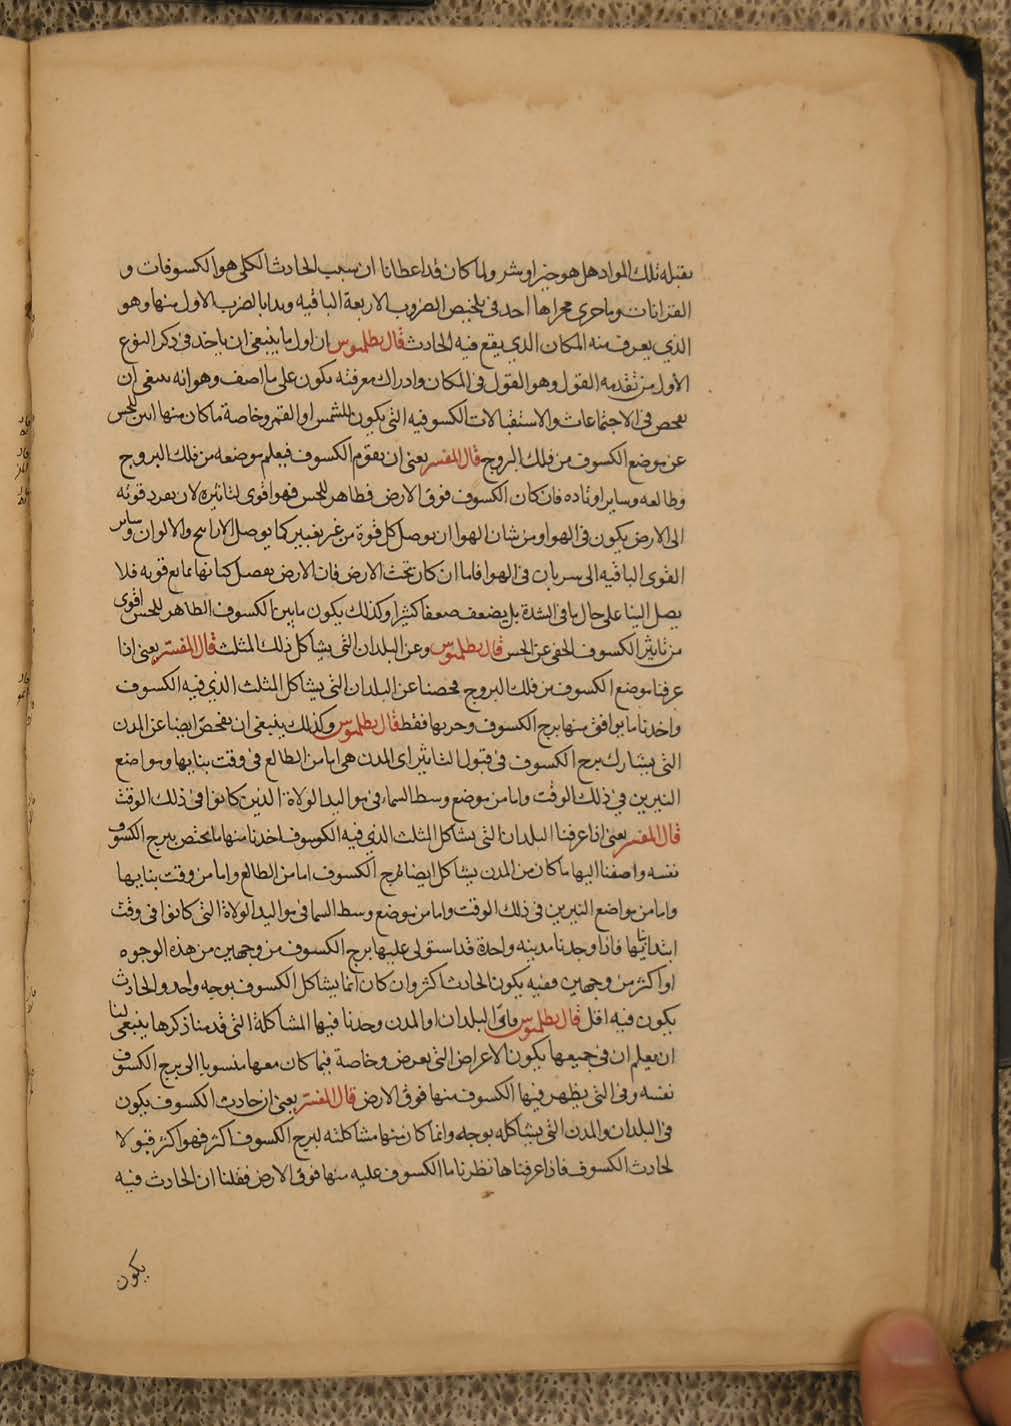 يقبله تلك المواد هل هو خير او شر ولما كان قد اعطانا ان سبب الحادث الكلى هو الكسوفات و
القرانات وما جرى مجراها اخذ فى تلخيص الضروب الاربعة الباقيه وبدا بالضرب الاول منها وهو
الذي يعرف منه المكان الذي يقع فيه الحادث قال بطلميوس ان اول ما ينبغى ان ياخذ فى ذكر النوع
الاول من تقدمه القول وهو القول فى المكان وادراك معرفته يكون على ما اصف وهو انه ينبغى ان
يفحص فى الاجتماعات والاستقبالات الكسوفيه التى يكون للشمس او القمر وخاصة ما كان منها ابين للحس
عن موضع الكسوف من فلك البروج قال المفسر يعنى ان يقوم الكسوف فيعلم موضعه من فلك البروج
وطالعه وساير اوتاده فان كان الكسوف فوق الارض فظاهر للحس فهو اقوى لتاثيره لان بعدد قوته
الى الارض يكون فى الهوا ومن شان الهوا ان يوصل كل قوة من غر تغيير كما يوصل الاراييح والالوان وساير
القوى الباقيه الى سريان فى الهوا فاما ان كان تحت الارض فان الارض يفصل كيانها يمانع قوته فلا
يصل الينا على حال ما فى الشدة بل يضعف ضعفا كثيرا وكذلك يكون ما بين الكسوف الظاهر للحس اقوى
من تاثير الكسوف الخفى عن الحس قال بطلميوس وعن البلدان التى يشاكل ذلك المثلث قال المفسر يعنى اذا
عرفنا موضع الكسوف من فلك البروج فحصنا عن البلدان التى يشاكل المثلث الذي فيه الكسوف
واخذنا ما يوافق منها برج الكسوف وحربها فقط قال بطلميوس وكذلك ينبغى ان يفحص ايضا عن المدن
التى يشارك برج الكسوف فى قبول التاثير اى المدن هى اما من الطالع فى وقت بنايها ومواضع
النيرين في ذلك الوقت واما من موضع وسط السماء فى مواليد الولاة الذين كانوا فى ذلك الوقت
قال المفسر يعنى اذا عرفنا البلدان التى يشاكل المثلث الذي فيه الكوسوف اخذنا منها ما يختص ببرج الكسوف
نفسه واضفنا اليها ما كان من المدن يشاكل ايضا برج الكسوف اما من الطالع واما من وقت بنايها
واما من مواضع النيرين فى ذلك الوقت واما من موضع وسط السما فى مواليد الولاة التى كانوا فى وقت
ابتدائها فاذا وجدنا مدينه واحدة قد استولى عليها برج الكسوف من وجهين من هذه الوجوه
او اكثر من وجهين ففيه يكون الحادث اكثر وان كان انما يشاكل الكسوف بوجه واحد والحادث
يكون فيه اقل قال بطلميوس واى البلدان او المدن وجدنا فيها المشاكلة التى قدمنا ذكرها ينبغى لنا
ان يعلم ان فى جميعها يكون الاعراض التى تعرض وخاصة فيما كان معها منسوبا الى برج الكسوف
نفسه وفى التى يظهر فيها الكسوف منها فوق الارض قال المفسر يعنى ان حادث الكسوف يكون
فى البلدان والمدن التى يشاكله بوجه وانما كان منها مشاكلته لبرج الكسوف اكثر فهو اكثر قبولا
لحادث الكسوف فاذا عرفناها نظرنا ما الكسوف عليه منها فوق الارض فقلنا ان الحادث فيه
يكون